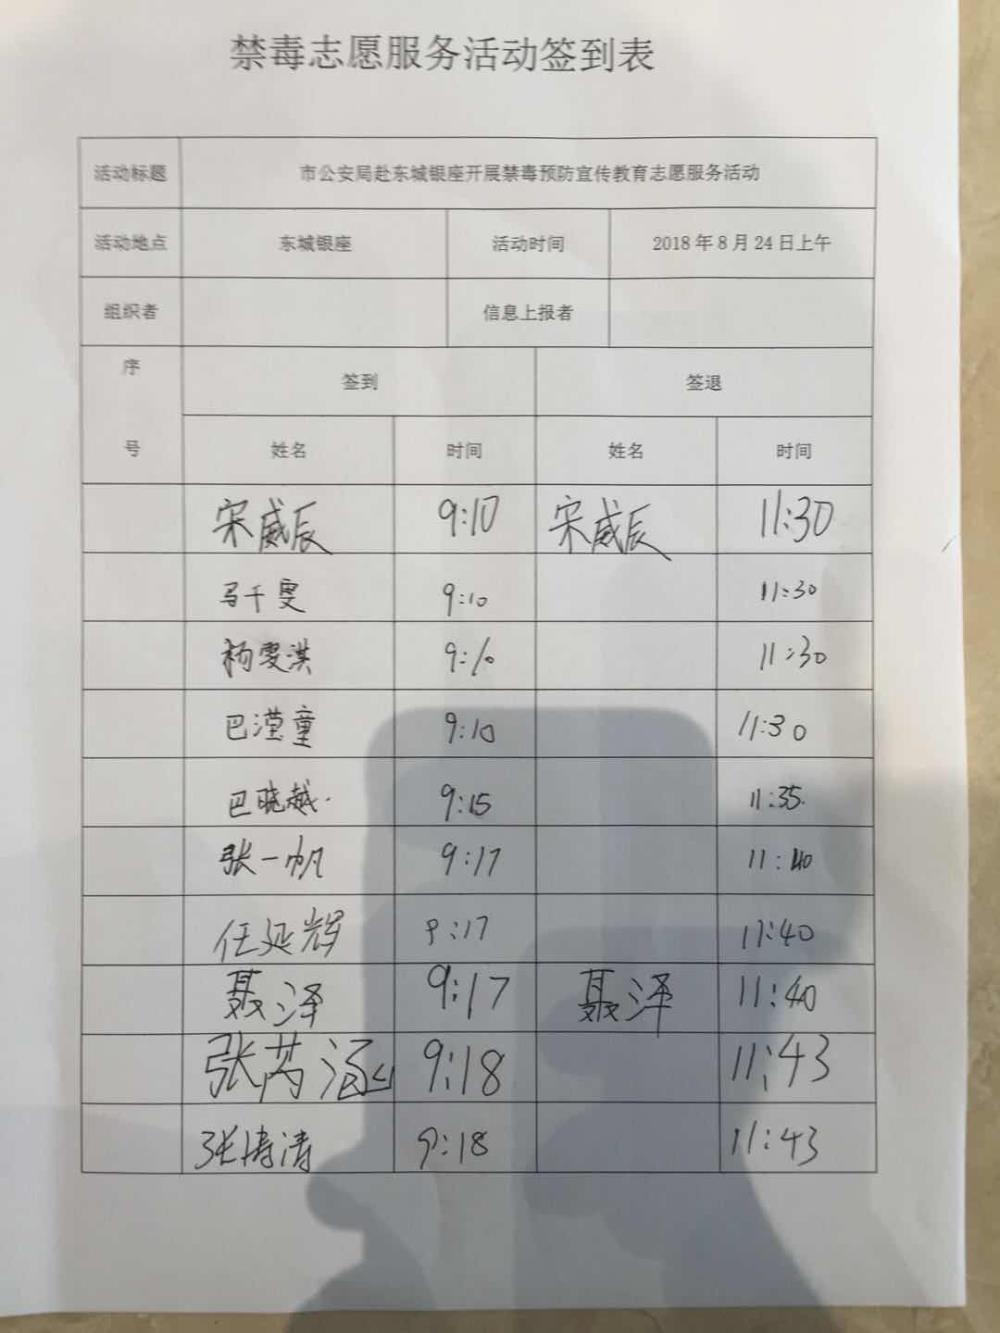 禁毒志愿服务活动签到表
活动标题 市公安局赴东城银座开展禁毒预防宣传教育志愿服务活动
活动地点 东城银座 活动时间 2018年8月24日上午
组织者 信息上报者
序号 签到 签退
姓名 时间 姓名 时间
宋威辰 9:10 宋威辰 11:30
马千雯 9:10 11:30
杨雯淇 9:10 11:30
巴滢童 9:10 11:30
巴晓越 9:15 11:35
张一帆 9:17 11:40
任延辉 9:17 11:40
聂泽 9:17 聂泽 11:40
张芮涵 9:18 11:43
9:18 11:43